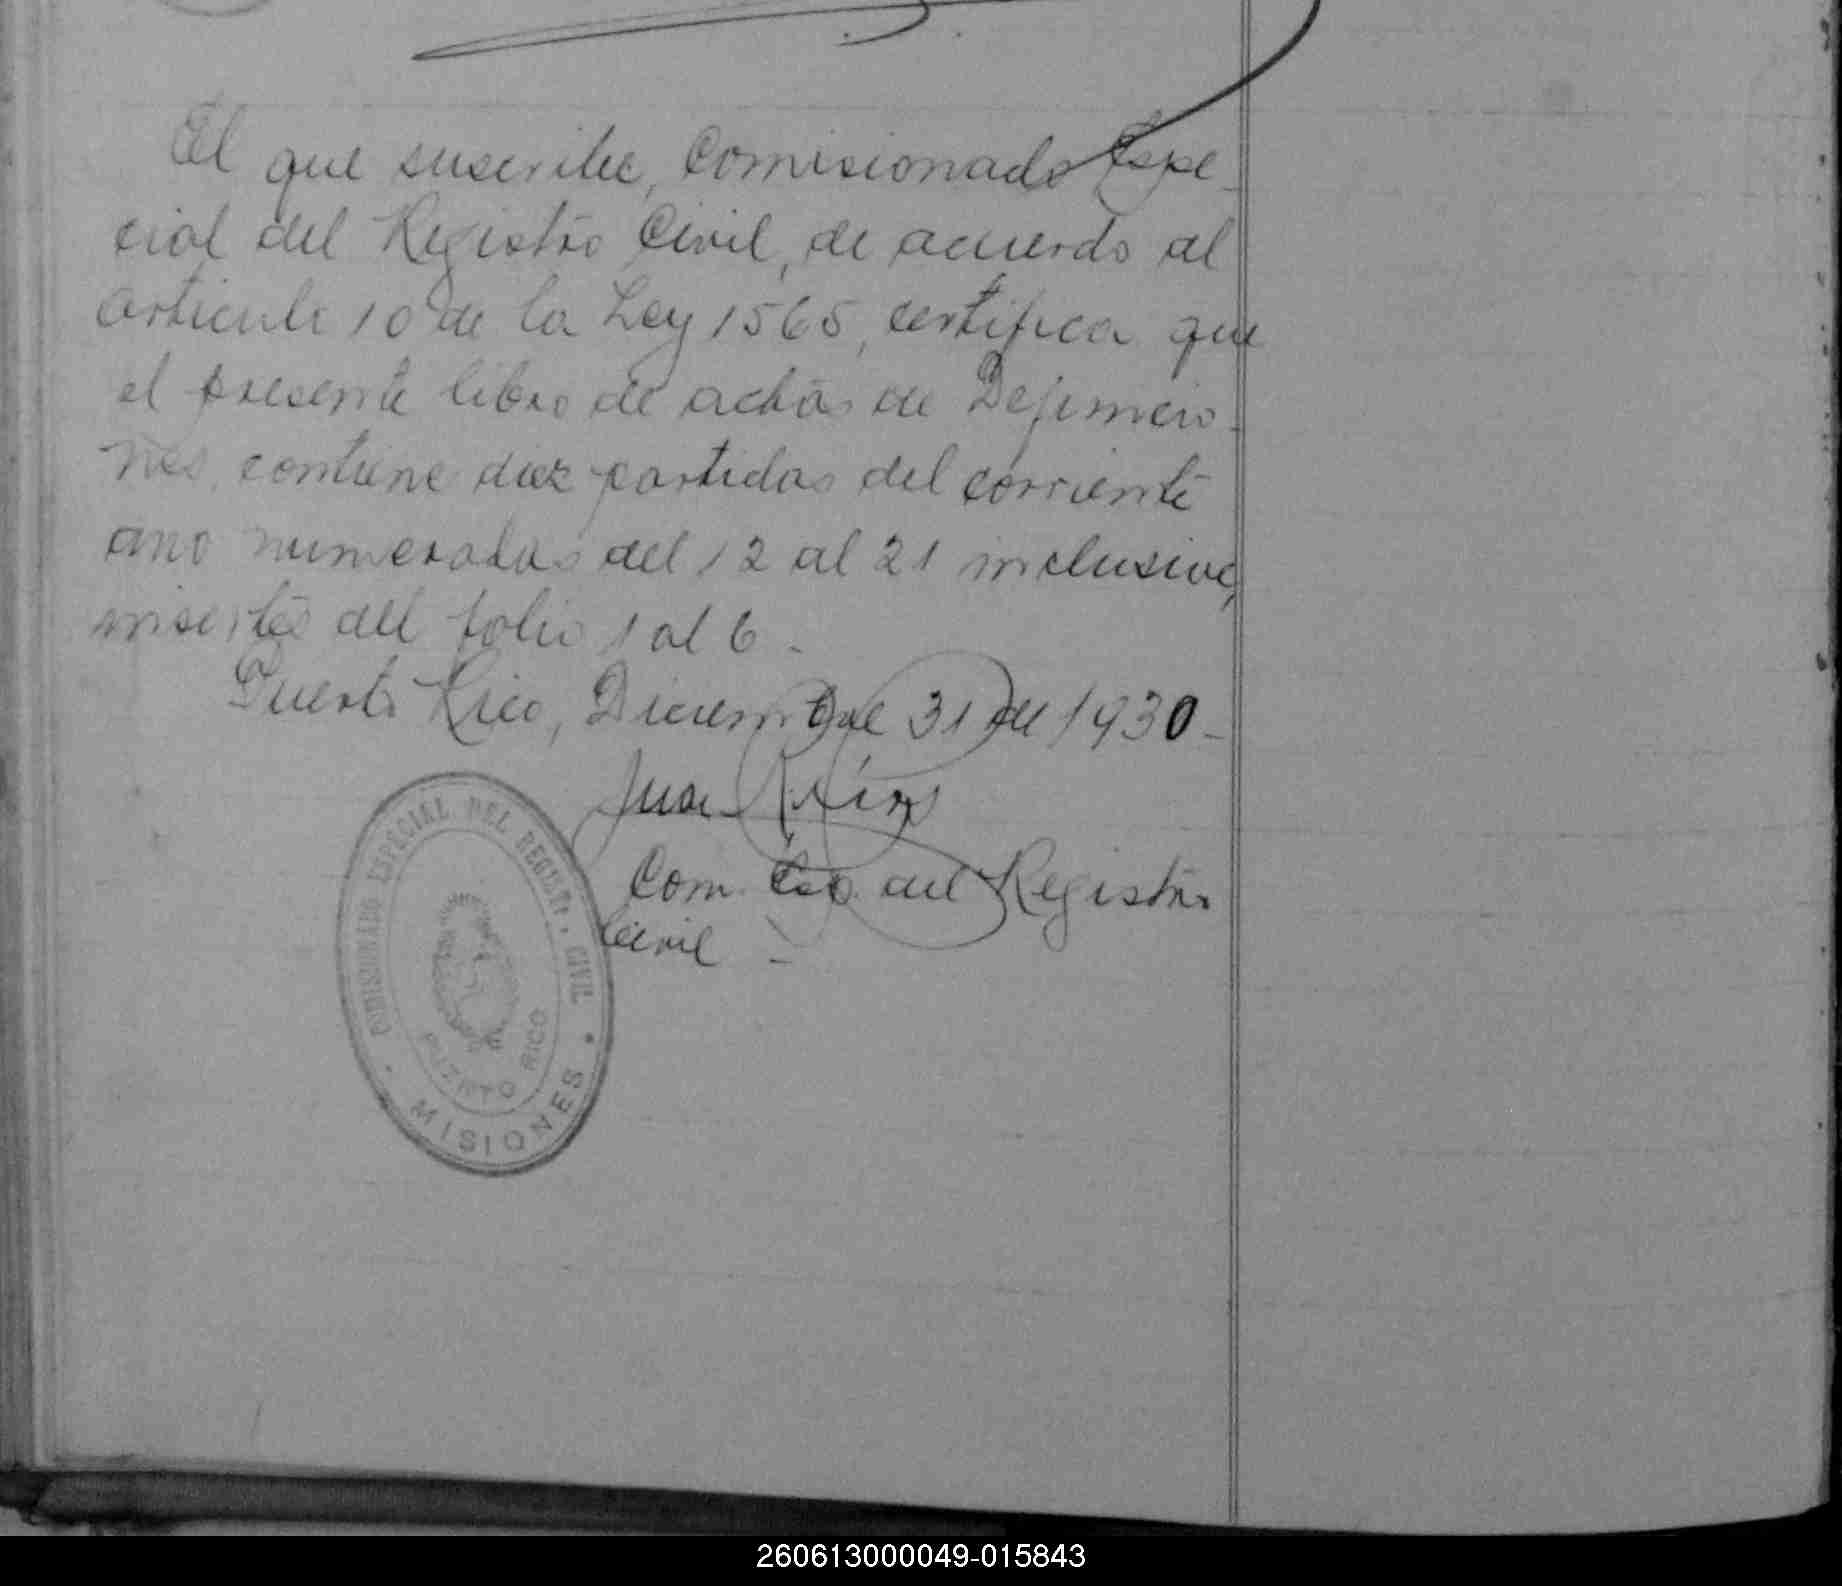 El que suscribe, Comisionado Espe-
cial del Registro Civil, de acuerdo al
articulo 10 de la Ley 1565, certifica que
el presente libro de actas de Defuncio-
nes, contiene diez partidas del corriente
año numeradas del 12 al 21 inclusive,
insertas del folio 1 al 6.-
Puerto Rico, Diciembre 31 de 1930-
Juan
Com. Esp. del Registro
Civil -
COMISIONADO ESPECIAL DEL REGIST. CIVIL
PUERTO RICO
MISIONES
260613000049-015843